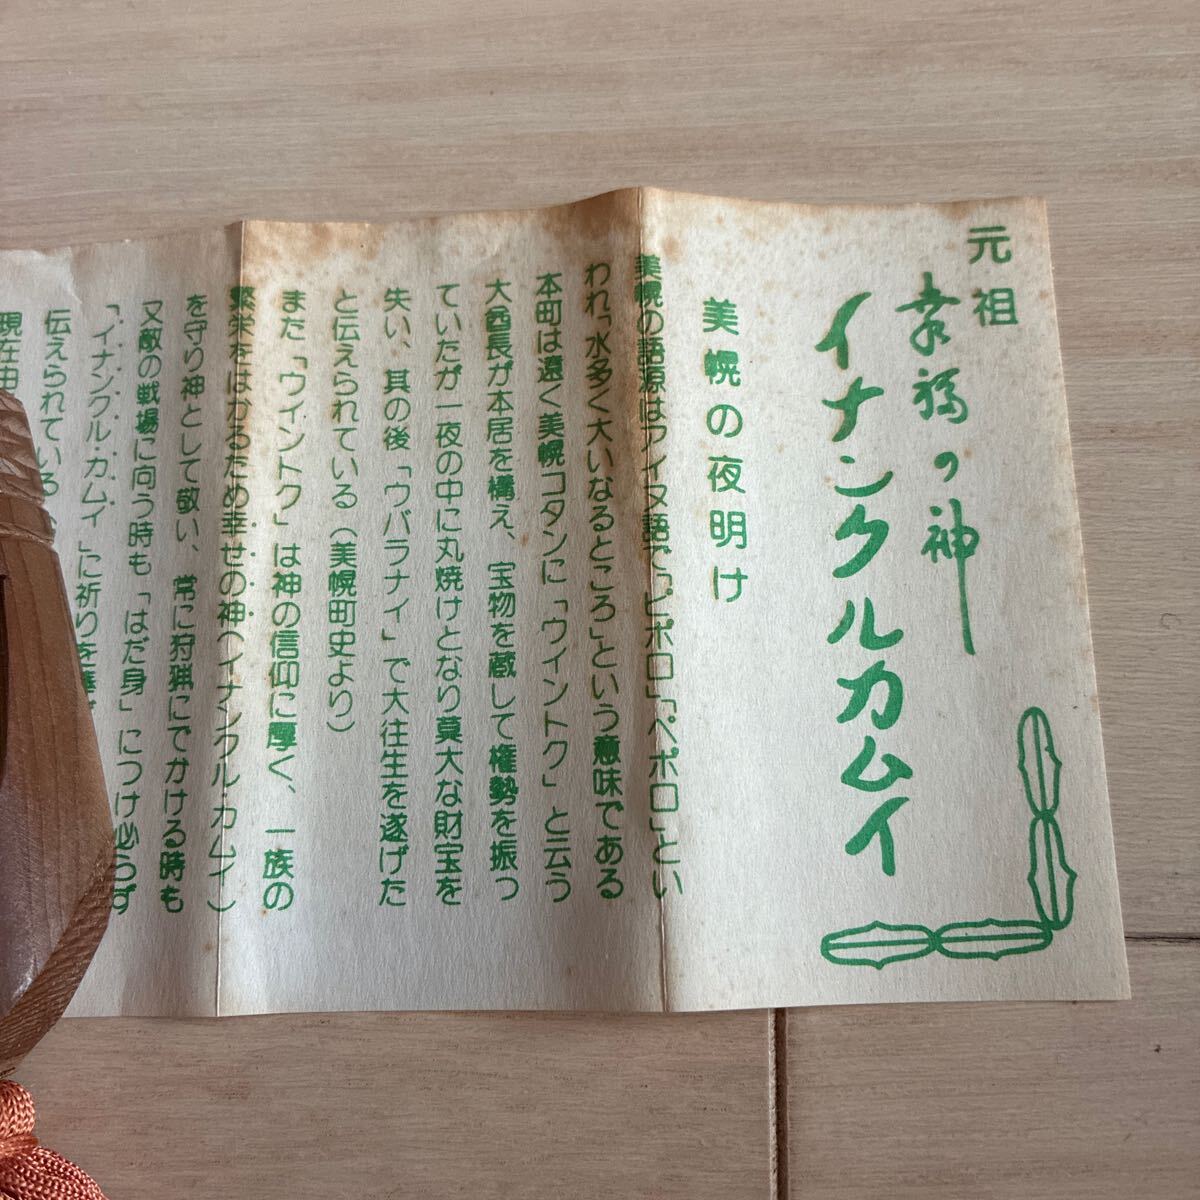 元祖
幸福の神
イナンクルカムイ
美幌の夜明け
美幌の語源はアイヌ語で「ピポロ」「ペポロ」とい
われ「水多く大いなるところ」という意味である
本町は遠く美幌コタンに「ウイントク」と云う
大酋長が本居を構え、宝物を蔵して権勢を振っ
ていたが一夜の中に丸焼けとなり莫大な財宝を
失い、其の後「ウバラナイ」で大往生を遂げた
と伝えられている(美幌町史より)
また「ウイントク」は神の信仰に厚く、一族の
繁栄をはかるため幸せの神(イナンクル カムイ)
を守り神として敬い、常に狩猟にでかける時も
又敵の戦場に向う時も「はだ身」につけ必らず
「イナンクル・カムイ」に祈りを
伝えられている
現在由